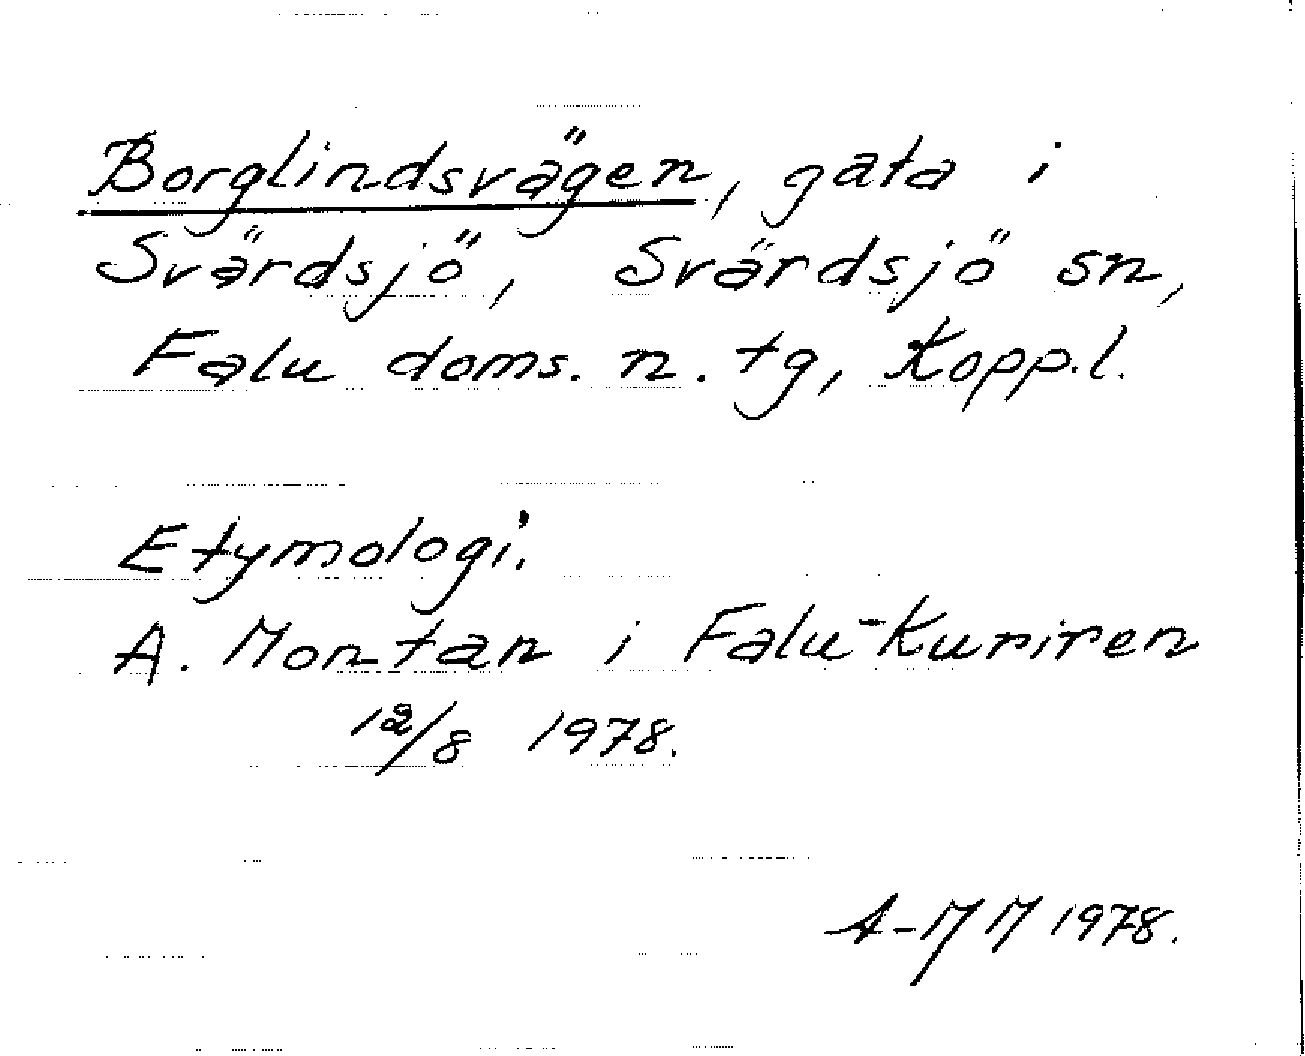 Borglindsvägen, gata i
Svärdsjö, Svärdsjö sn,
Falu doms. n. tg, Kopp.l.
Etymologi.
A. Montan i Falu-Kuriren
12/8 1978.
A-MM 1978.